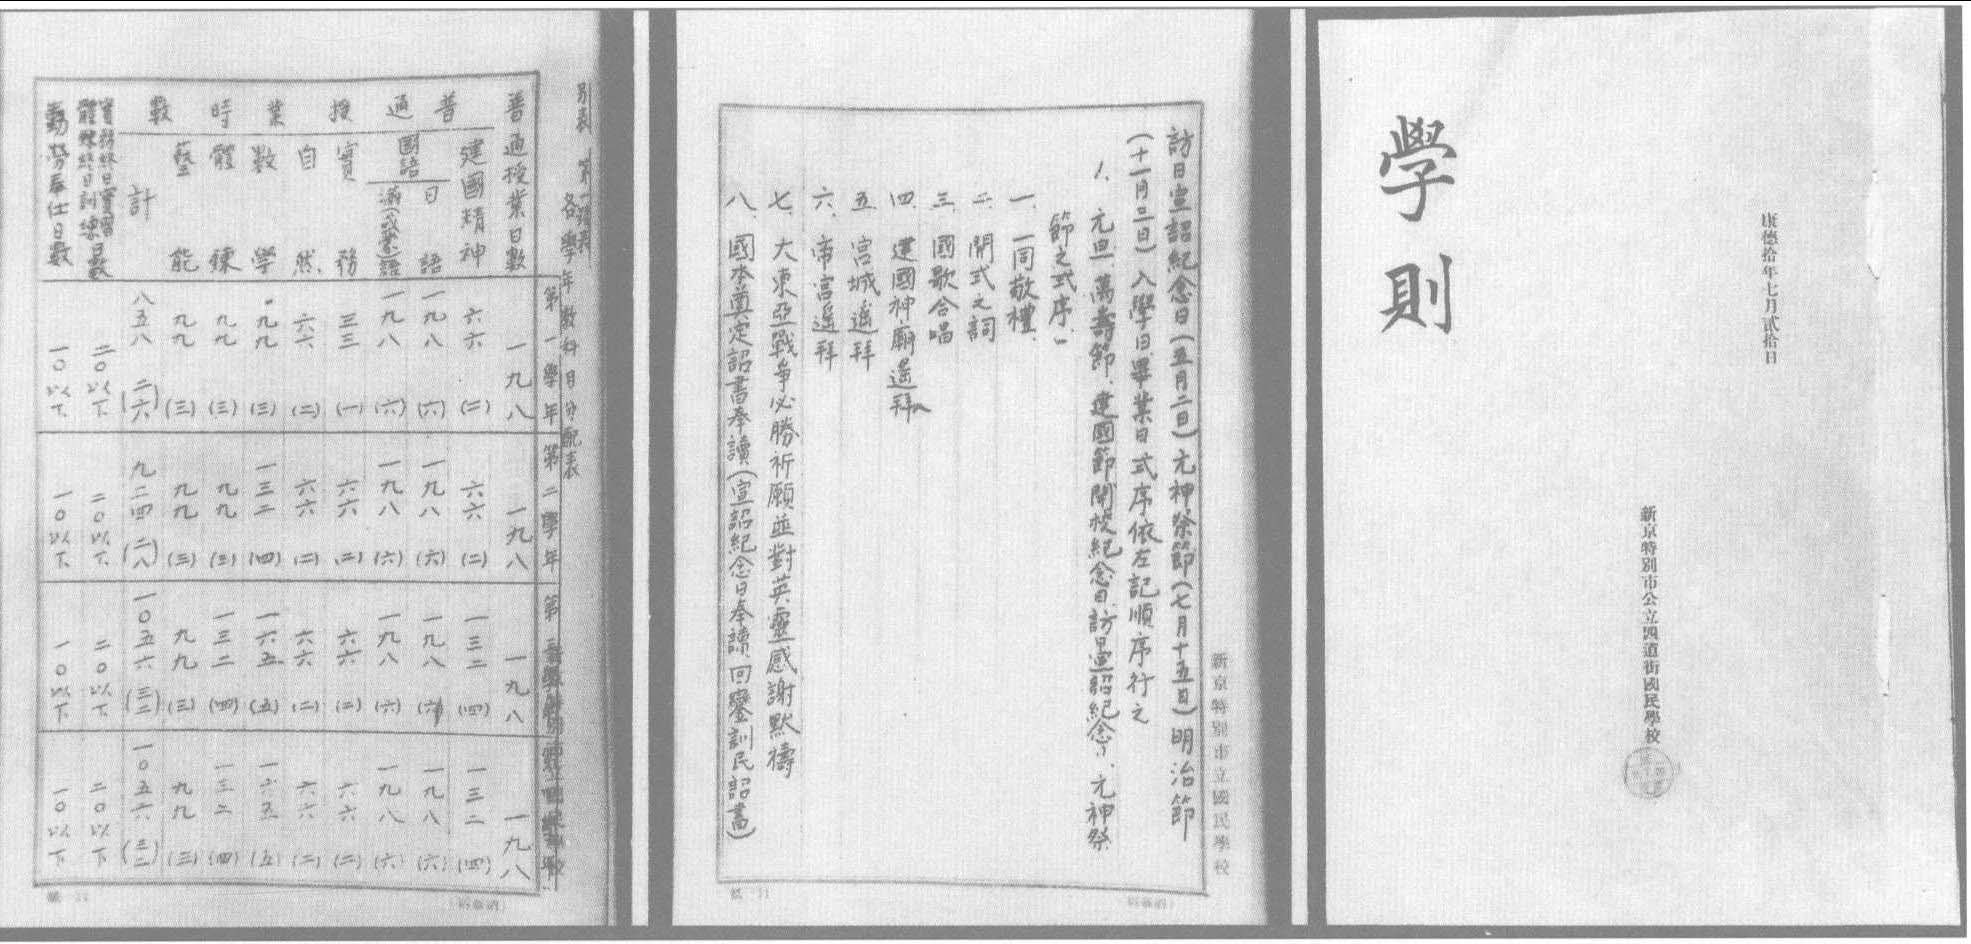 學則
康德拾年七月貳拾日
新京特別市公立四道街國民學校
訪日宣詔紀念日(五月二日)元神祭節(七月十五日)明治節
(十一月三日)入學日畢業日式序依左記順序行之
1、元旦、萬壽節、建國節、開校紀念日、訪日宣詔紀念、元神祭
節之式序、
一、一同敬禮、
二、開式之詞
三、國歌合唱
四、建國神廟遙拜
五、宮城遙拜
六、帝宮遙拜
七、大東亞戰爭必勝祈願並對英靈感謝默禱
八、國本奠定詔書奉讀(宣詔紀念日奉讀回鑾訓民詔書)
新京特別市立國民學校
別表 第一號表
各學年教科目分配表
第一學年 第二學年
普通授業日數 一九八 一九八 一九八 一九八
普通授業時數
建國精神 六六(二) 六六(二) 一三二(四) 一三二(四)
國語 日語 一九八(六) 一九八(六) 一九八(六) 一九八(六)
滿(或蒙)語 一九八(六) 一九八(六) 一九八(六) 一九八(六)
實務 三三(一) 六六(二) 六六(二) 六六(二)
自然 六六(二) 六六(二) 六六(二) 六六(二)
數學 九九(三) 一三二(四) 一六五(五) 一六五(五)
體鍊 九九(三) 九九(三) 一三二(四) 一三二(四)
藝能 九九(三) 九九(三) 九九(三) 九九(三)
計 八五八(二六) 九二四(二八) 一〇五六(三二) 一〇五六(三二)
實務終日實習體鍊終日訓練日數 二〇以下 二〇以下 二〇以下 二〇以下
勤勞奉仕日數 一〇以下 一〇以下 一〇以下 一〇以下